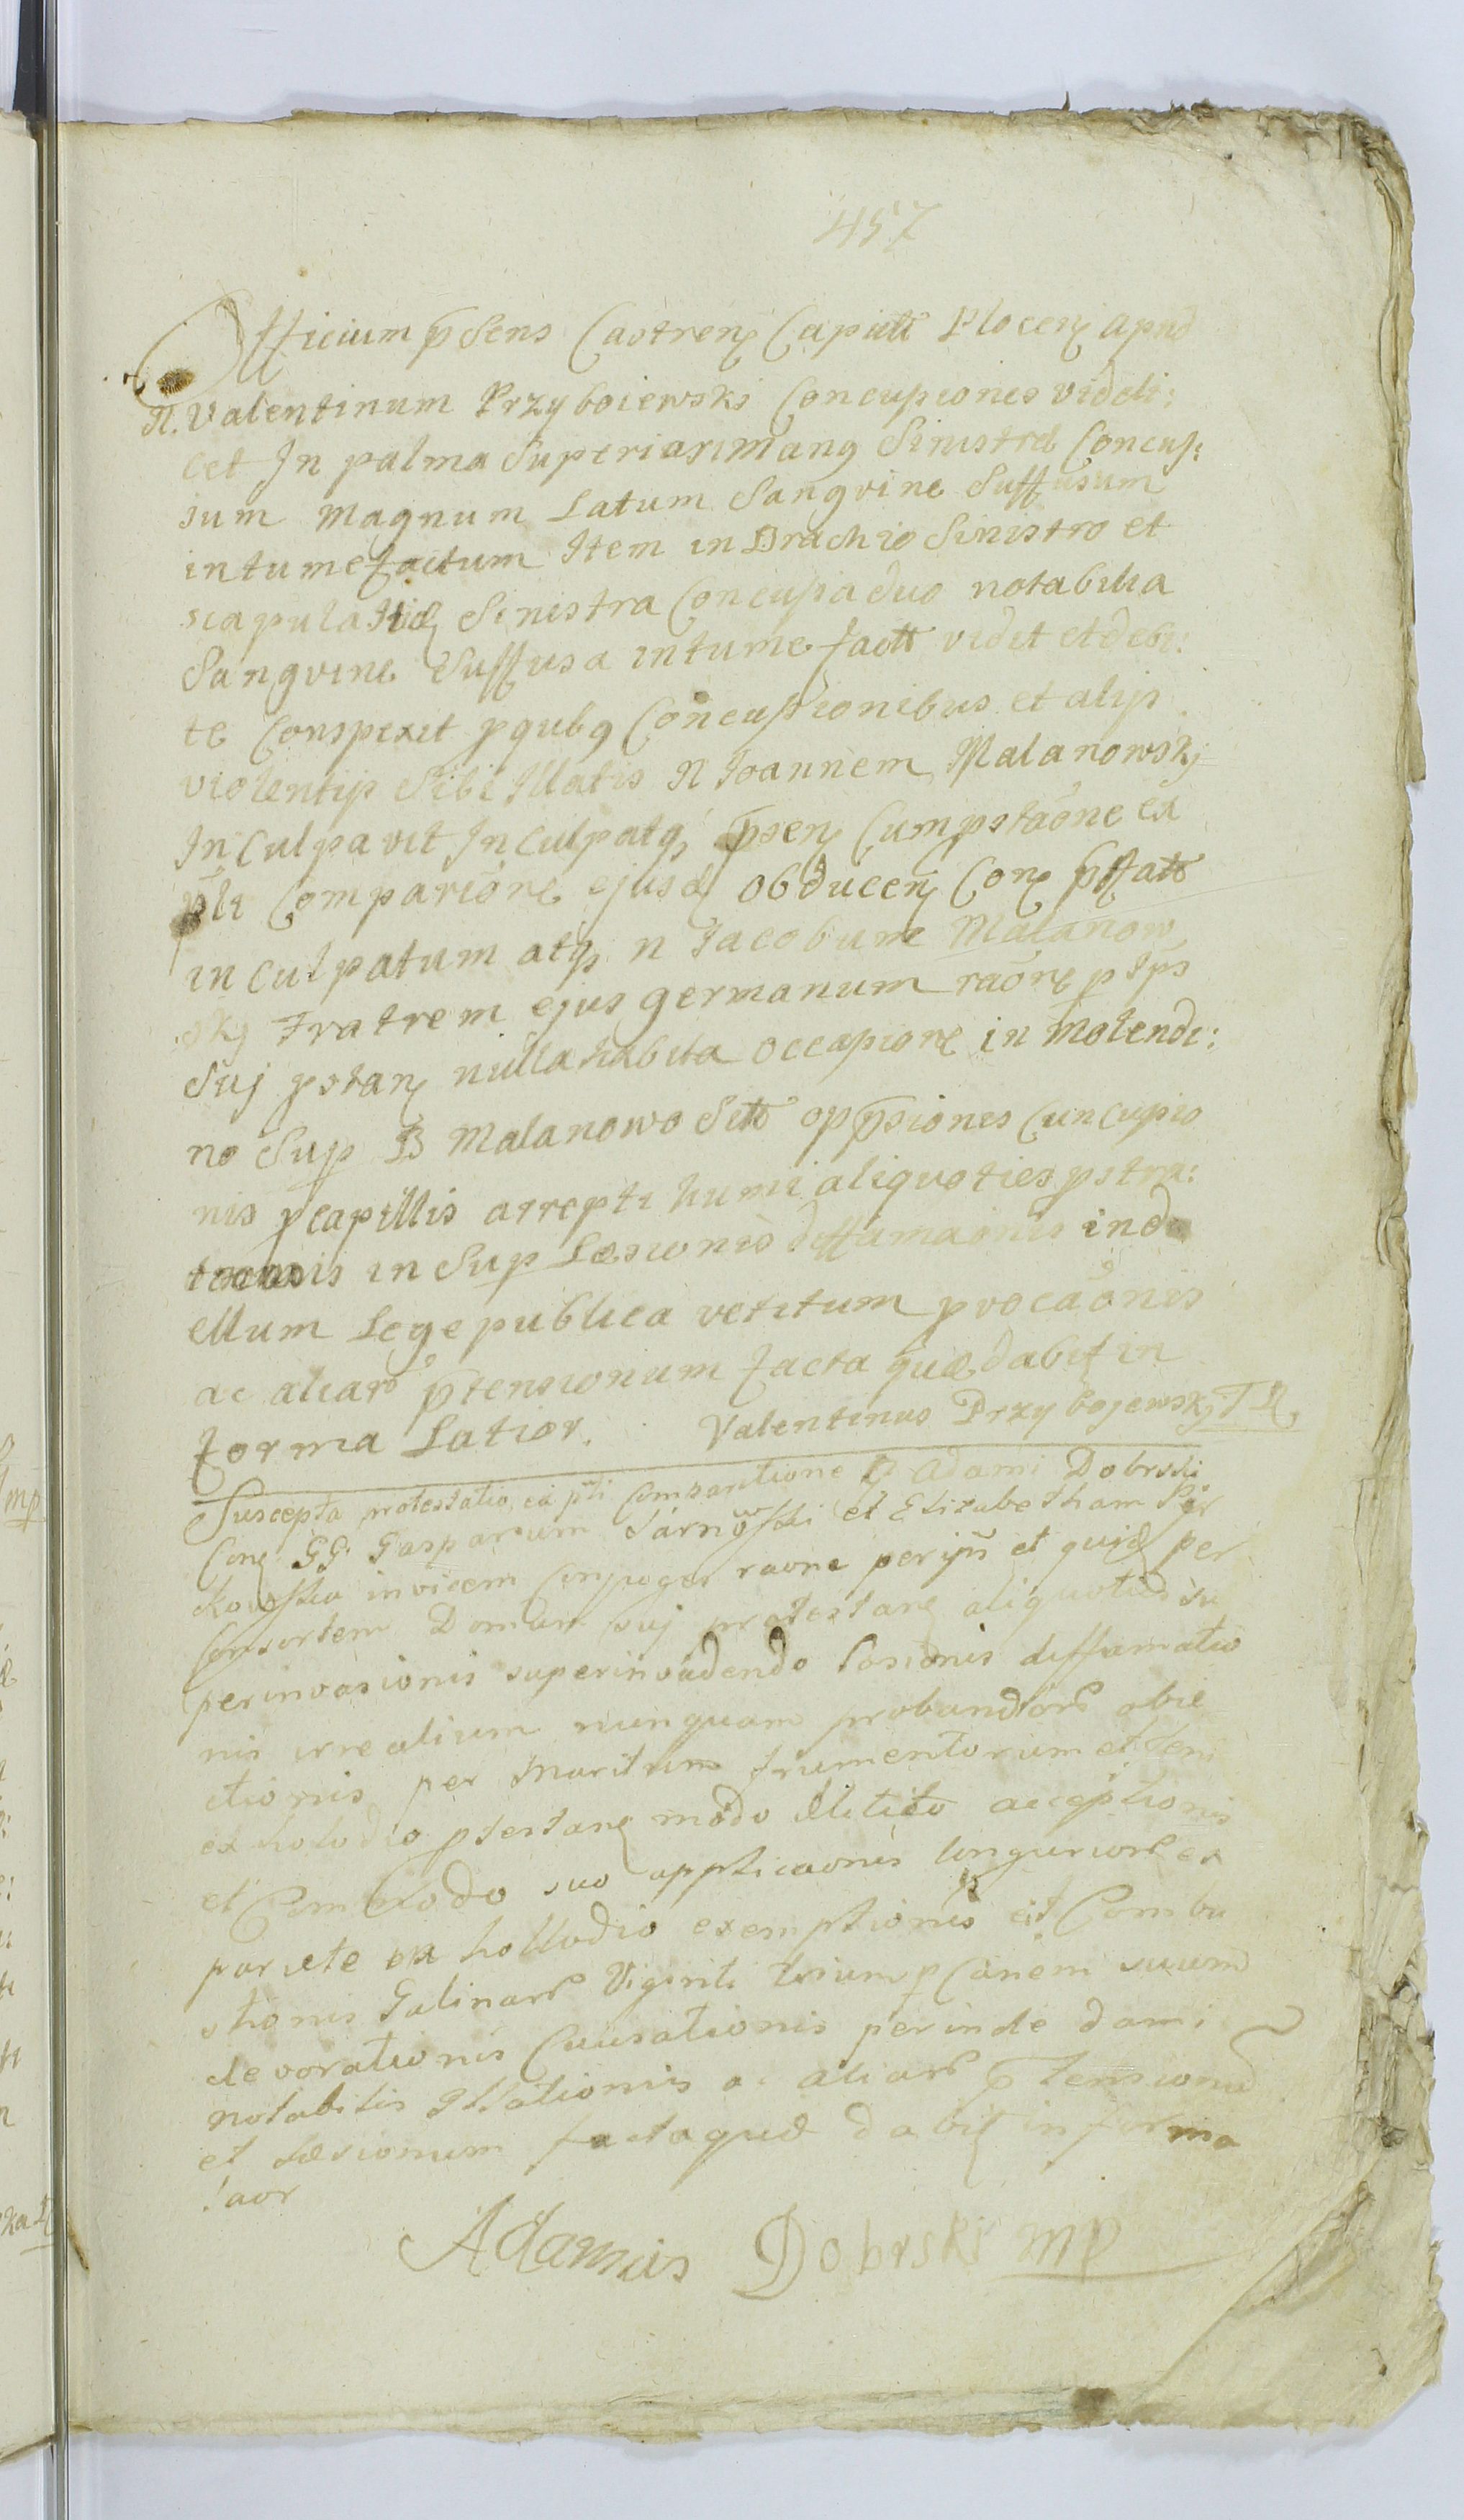 457
Officium pśens Castren Capitt Plocen apud
N. Valentinum Przyboiewski Concusiones videli:
cet In palma Superiori manꝯ Sinistræ Concus:
sum magnum Latum Sangvine Suffusum
intumefactum Item in Brachio Sinistro et
scapula Sinistra Concusia duo notabilia
Sangvine Suffusa intumefactt vidit et debi:
te Conspexit p qubꝯ Concussionibus et alijs
violentijs Sibi Illatis N Joannem Malanowskj
Inculpavit Inculpatqꝫ psen Cum pstaōne ex
pñti Compariōne ejusd obducen Con pffatt
inculpatum atqꝫ N Jacobum Malanow
skj Fratrem ejus germanum raōne p Ips
Suj pstan nulla habita occasione in Molendi:
no Sup B Malanowo Sitt oppsiones Cuncusio
nis p capillis arrepti humi aliquoties pstra:
tionis in Sup Læsionis diffamaōnis in du
ellum Lege publica vetitum procaōnis
ac aliar ptensionum facta quæ dabit in
forma Latior. Valentinus Przybojewskj T N
Suscepta protestatio ex pñti Comparitione G Adami Dobrski
Con GG Gasparum Sarnowski et Elizabetham
kowska invicem Conjuges raone perijs et quid per
Consortem Domum suj protestan aliquoties su
perinvasionis superinvadendo Læsionis diffamatio
nis irrealium nunquam probandor obie
ctionis per Maritum frumentorum et feni
ex holodio ptestan modo illicito acceptionis
et Commodo suo applicaonis ex
pariete ex hollodio exemptionis eit Combu
stionis Galinar Viginti trium p Canem suum
devorationis Causationis perinde dami
notabilis Illationis ac aliar ptensionu
et Læsionum facta quæ dabit in forma
laor
Adamus Dobrski mp